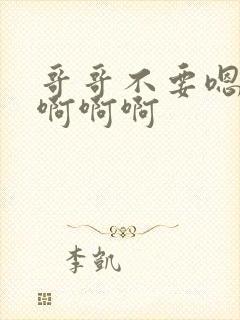 哥哥不要嗯
啊啊啊
李凯